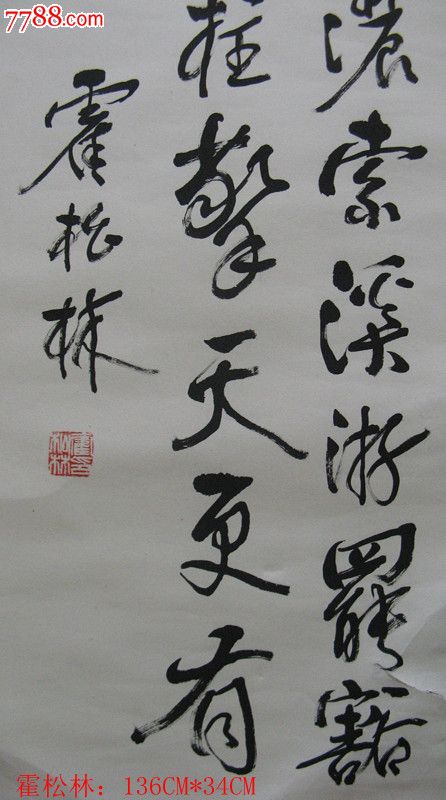 7788.com
索溪游罷豁
柱擎天更有
霍松林
霍松林印
霍松林：136CM*34CM